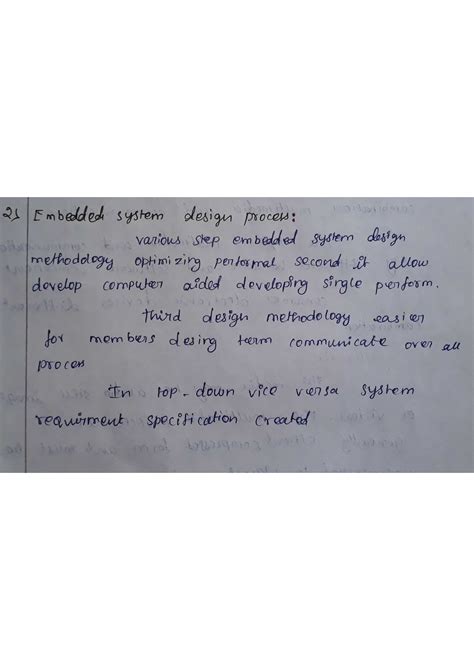 2) Embedded system design process:
various step embedded system design
methodology optimizing performal second it allow
develop computer aided developing single perform.
third design methodology easier
for members desing term communicate over all
process
In top-down vice versa system
requirment specification created